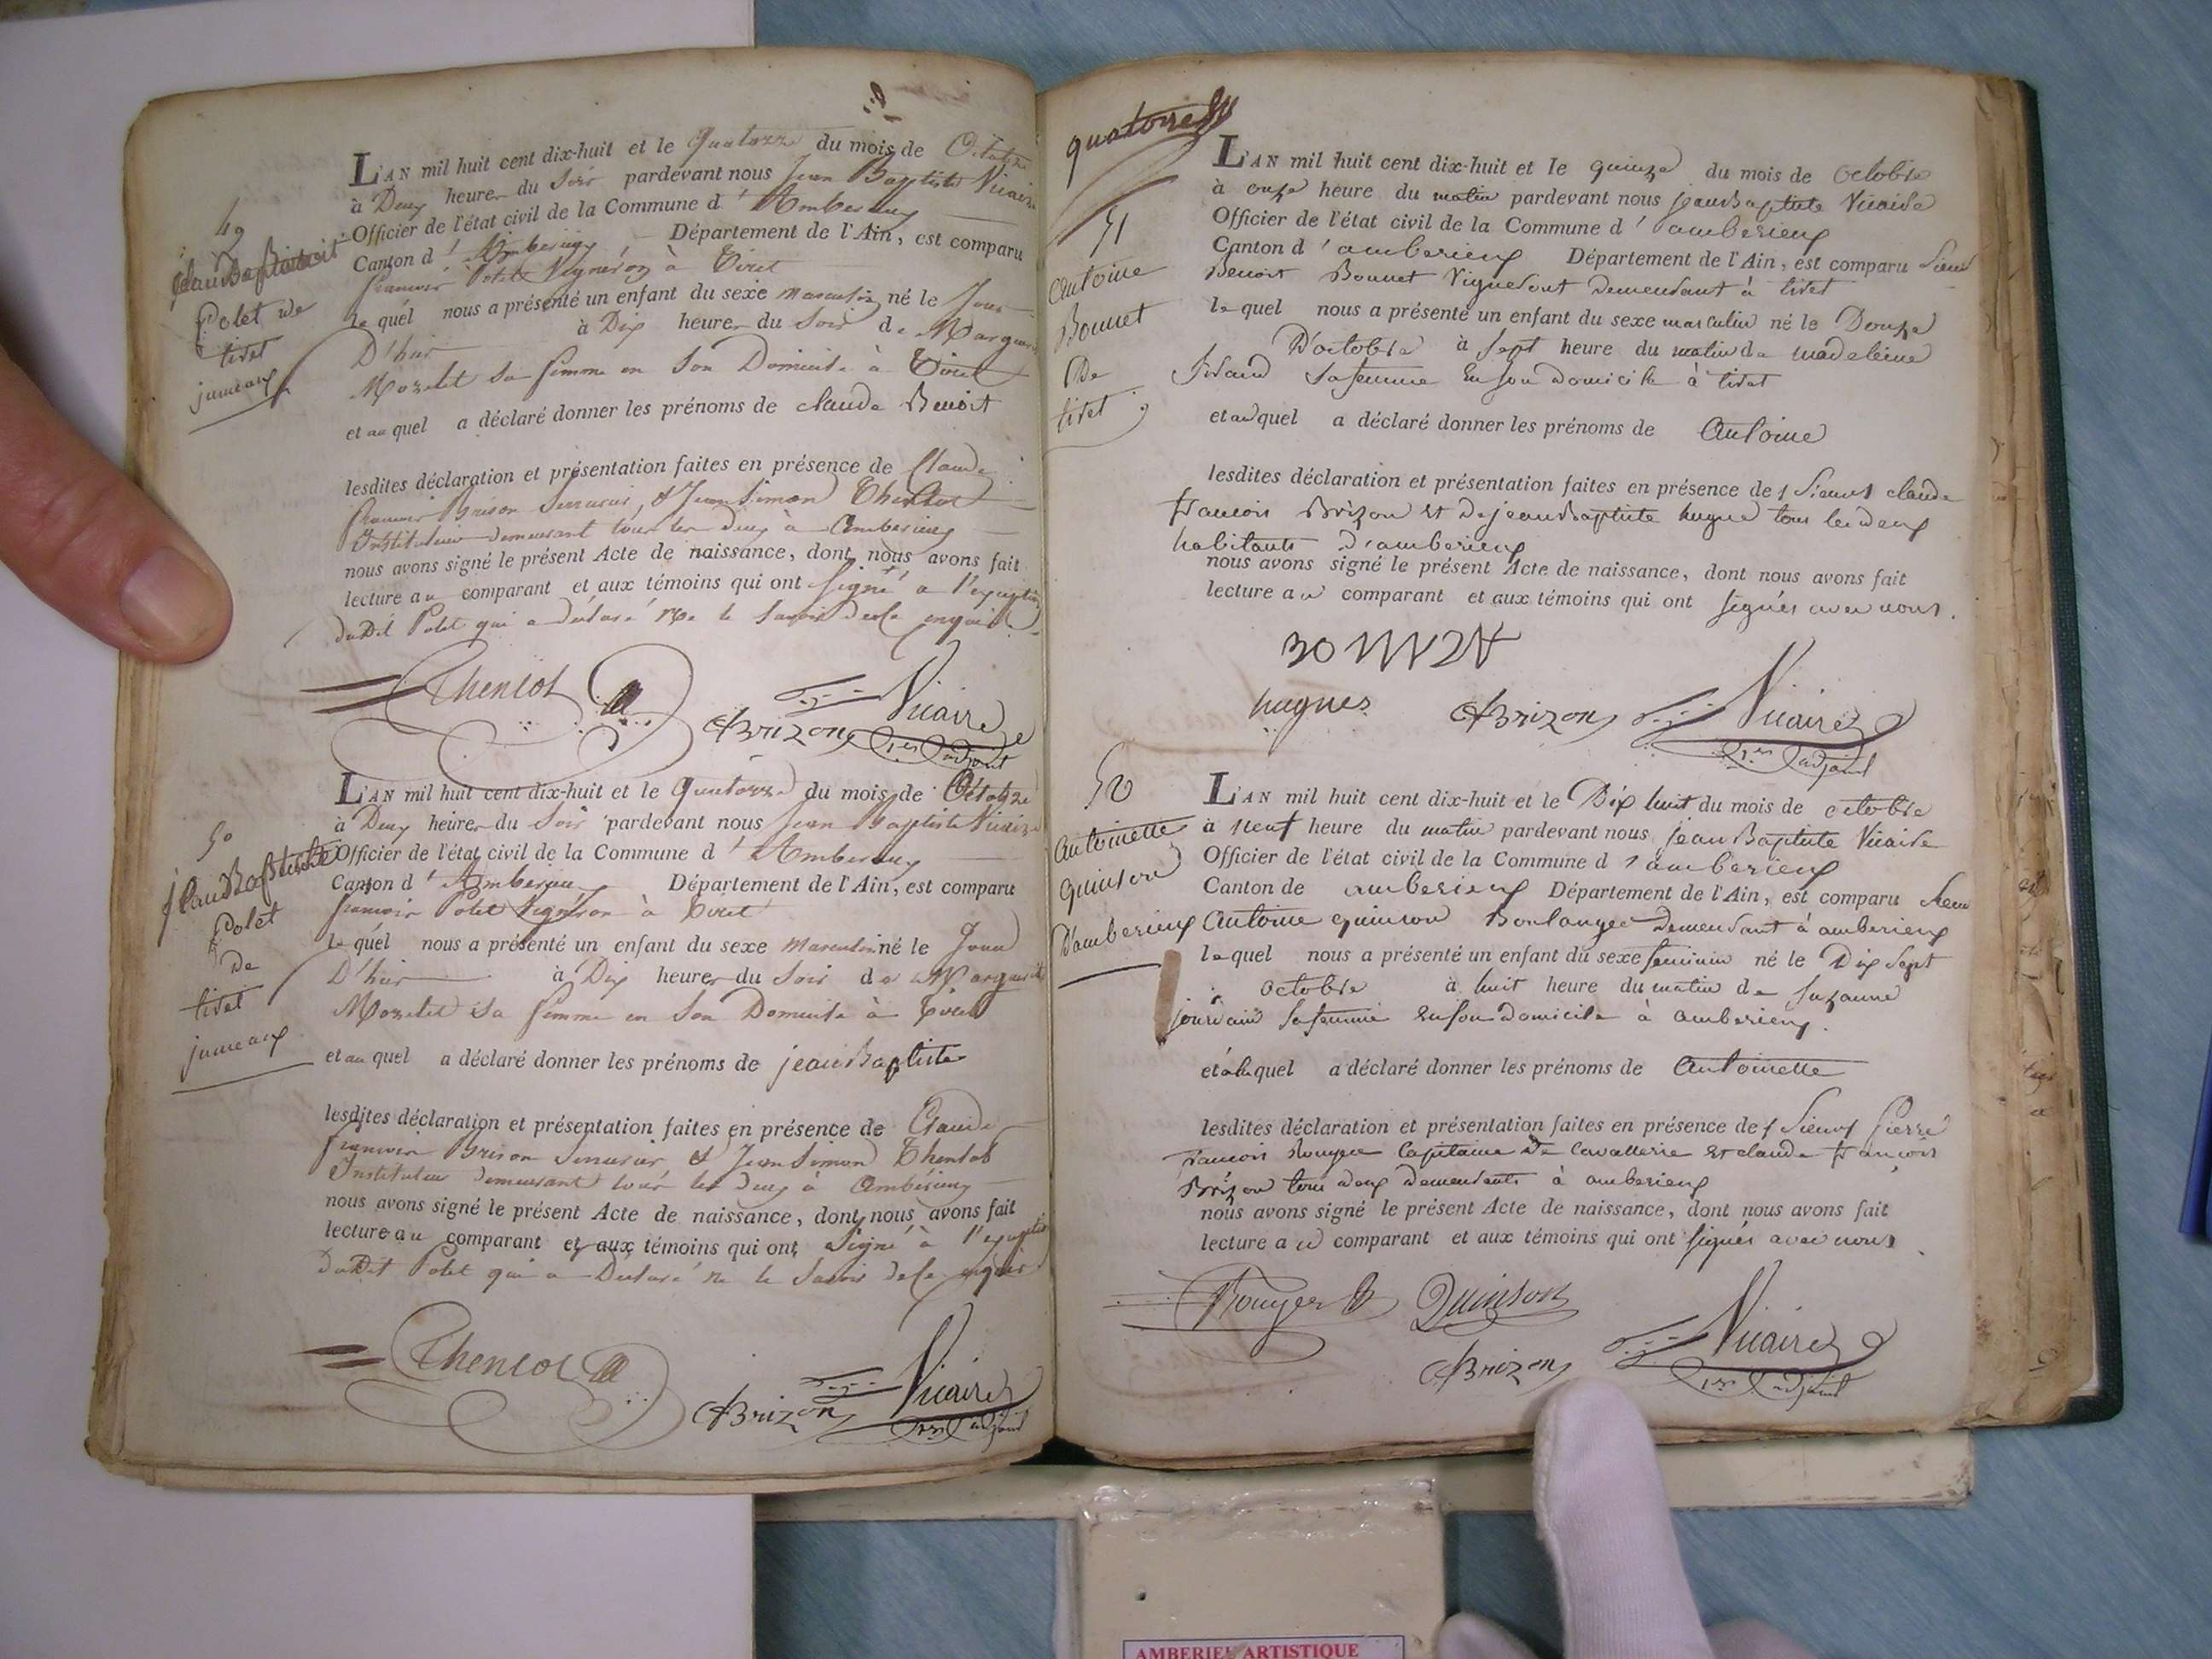 49
Polet de
tiret
jumeaux
L'AN mil huit cent dix-huit et le Quatorze du mois de Octobre
à Deux heures du Soir pardevant nous Jean Baptiste Vicaire
Officier de l'état civil de la Commune d'Amberieux
Canton d'Amberieux Département de l'Ain, est comparu
francois Polet Vigneron à Tiret
le quel nous a présenté un enfant du sexe Masculin né le Jour
D'hier à Dix heures du Soir de Marguerite
Morelet sa femme en Son Domicile à Tiret
et au quel a déclaré donner les prénoms de claude Benoit
lesdites déclaration et présentation faites en présence de Claude
francois Brison Serrurier, & Jean Simon Thenlot
Instituteur demeurant tous les deux à Amberieux
nous avons signé le présent Acte de naissance, dont nous avons fait
lecture au comparant et aux témoins qui ont Signé à l'exception
dudit Polet qui a déclaré ne le Savoir de ce enquis
Thenlot
CfBrizon
Vicaire
1er adjoint
50
jeanBaptiste
Polet
De
tiret
jumeaux
L'AN mil huit cent dix-huit et le Quatorze du mois de Octobre
à Deux heures du Soir pardevant nous Jean Baptiste Vicaire
Officier de l'état civil de la Commune d'Amberieux
Canton d'Amberieux Département de l'Ain, est comparu
francois Polet Vigneron à Tiret
le quel nous a présenté un enfant du sexe Masculin né le Jour
D'hier à Dix heures du Soir de Marguerite
Morelet Sa femme en Son Domicile à Tiret
et au quel a déclaré donner les prénoms de jean Baptiste
lesdites déclaration et présentation faites en présence de Claude
francois Brison Serrurier & Jean Simon Thenlot
Instituteur demeurant tous les deux à Amberieux
nous avons signé le présent Acte de naissance, dont nous avons fait
lecture au comparant et aux témoins qui ont Signé à l'exception
dudit Polet qui a Déclaré ne le Savoir de ce enquis
Thenlot
CfBrizon
Vicaire
1er adjoint
quatorze
51
antoine
Bonnet
De
tiret
L'AN mil huit cent dix-huit et le quinze du mois de octobre
à onze heure du matin pardevant nous jean Baptiste Vicaire
Officier de l'état civil de la Commune d'amberieux
Canton d'amberieux Département de l'Ain, est comparu Sieur
Benoit Bonnet Vigneront Demeurant à tiret
le quel nous a présenté un enfant du sexe masculin né le Douze
D'octobre à Sept heure du matin de madeleine
sa femme En son Domicile à tiret
et au quel a déclaré donner les prénoms de Antoine
lesdites déclaration et présentation faites en présence des Sieurs claude
francois Brizon Et De jean Baptiste hugue tous les deux
habitants D'amberieux
nous avons signé le présent Acte de naissance, dont nous avons fait
lecture au comparant et aux témoins qui ont signés avec nous.
hugues
CfBrizon
Vicaire
1er adjoint
52
Antoinette
quinson
D'amberieux
L'AN mil huit cent dix-huit et le Dix huit du mois de octobre
à neuf heure du matin pardevant nous jean Baptiste Vicaire
Officier de l'état civil de la Commune d'amberieux
Canton de amberieux Département de l'Ain, est comparu Sieur
Antoine quinson Boulanger Demeurant à amberieux
le quel nous a présenté un enfant du sexe feminin né le Dix Sept
octobre à huit heure du matin de Suzanne
jourdain Sa femme En son Domicile à amberieux.
et à la quel a déclaré donner les prénoms de Antoinette
lesdites déclaration et présentation faites en présence des Sieurs Pierre
francois Rouyer Capitaine De Cavallerie Et claude francois
Brizon tous deux Demeurants à amberieux
nous avons signé le présent Acte de naissance, dont nous avons fait
lecture au comparant et aux témoins qui ont signés avec nous
Rouyer
Quinson
CfBrizon
Vicaire
1er adjoint
AMBERIEU ARTISTIQUE